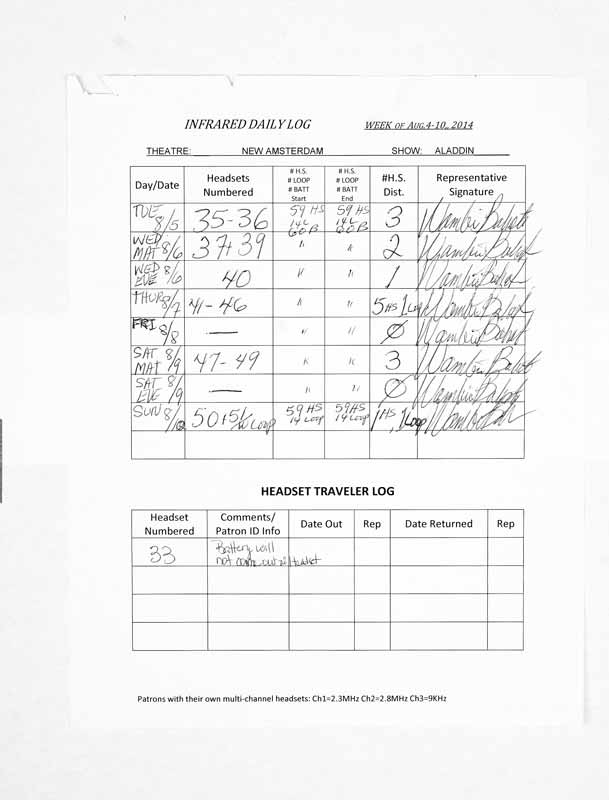 INFRARED DAILY LOG WEEK OF AUG.4-10,, 2014
THEATRE: NEW AMSTERDAM SHOW: ALADDIN
Day/Date Headsets Numbered # H.S. # LOOP # BATT Start # H.S. # LOOP # BATT End #H.S. Dist. Representative Signature
TUE 8/5 35-36 59 HS 14 L 60 B 59 HS 14 L 60 B 3
WED MAT 8/6 37+39 " " 2
WED EVE 8/6 40 " " 1
THUR 8/7 41-46 " " 5 HS 1 Loop
FRI 8/8 — " " Ø
SAT MAT 8/9 47-49 " " 3
SAT EVE 8/9 — " " Ø
SUN 8/10 50+51 Loop 59 HS 14 Loop 59 HS 14 Loop 1 HS, 1 Loop
HEADSET TRAVELER LOG
Headset Numbered Comments/ Patron ID Info Date Out Rep Date Returned Rep
33 Battery will
not come out
Patrons with their own multi-channel headsets: Ch1=2.3MHz Ch2=2.8MHz Ch3=9KHz